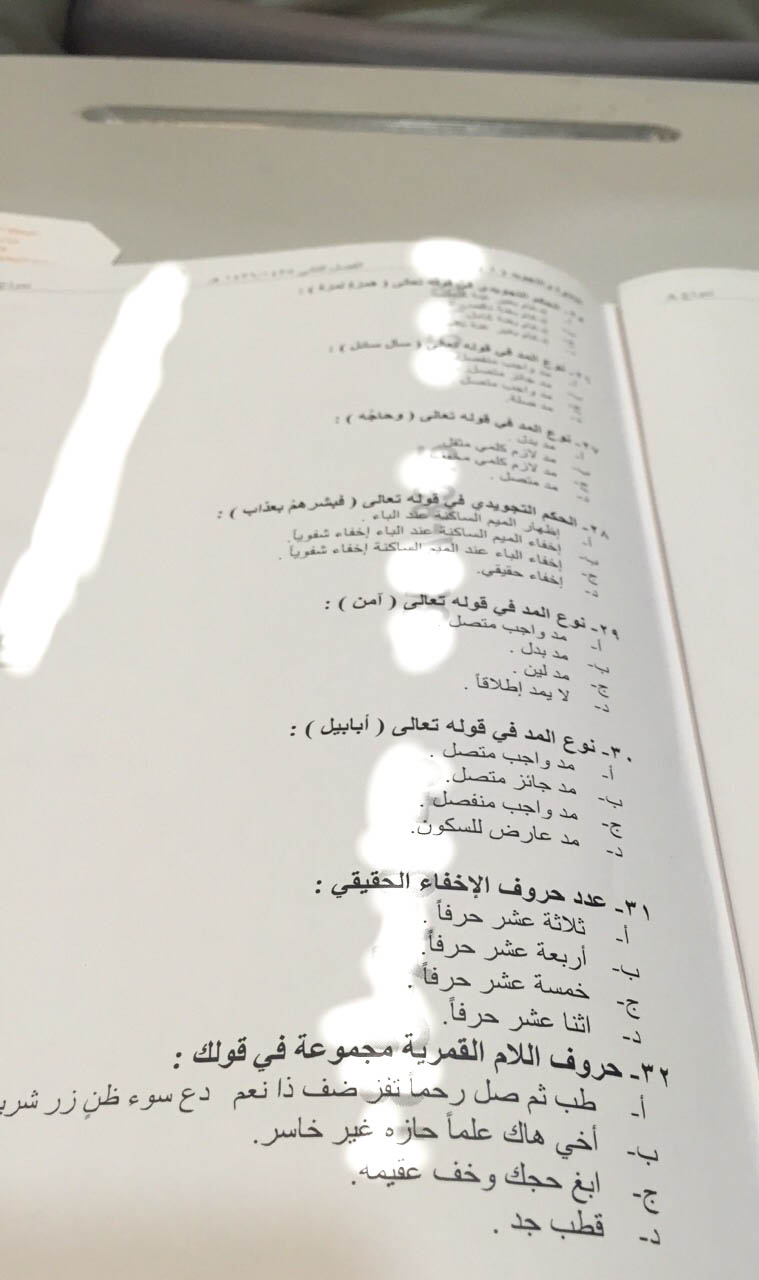 الفصل الثاني
الحكم التجويدي في قوله تعالى ( همزة لمزة ) :
نوع المد في قوله تعالى ( سأل سائل ) :
مد واجب منفصل
مد جائز متصل
مد واجب متصل
مد صلة.
٢٧- نوع المد في قوله تعالى ( وحاجه ) :
أ- مد بدل .
ب- مد لازم كلمي مثقل
ج- مد لازم كلمي مخفف
د- مد متصل .
٢٨- الحكم التجويدي في قوله تعالى ( فبشرهم بعذاب ) :
أ- إظهار الميم الساكنة عند الباء .
ب- إخفاء الميم الساكنة عند الباء إخفاء شفوياً.
ج- إخفاء الباء عند الميم الساكنة إخفاء شفوياً .
د- إخفاء حقيقي.
٢٩- نوع المد في قوله تعالى ( آمن ) :
أ- مد واجب متصل .
ب- مد بدل .
ج- مد لين .
د- لا يمد إطلاقاً .
٣٠- نوع المد في قوله تعالى ( أبابيل ) :
أ- مد واجب متصل .
ب- مد جائز متصل.
ج- مد واجب منفصل .
د- مد عارض للسكون.
٣١- عدد حروف الإخفاء الحقيقي :
أ- ثلاثة عشر حرفاً .
ب- أربعة عشر حرفاً.
ج- خمسة عشر حرفاً .
د- اثنا عشر حرفاً.
٣٢- حروف اللام القمرية مجموعة في قولك :
أ- طب ثم صل رحماً تفز ضف ذا نعم دع سوء ظنٍ زر
ب- أخي هاك علماً حازه غير خاسر.
ج- ابغ حجك وخف عقيمه.
د- قطب جد .